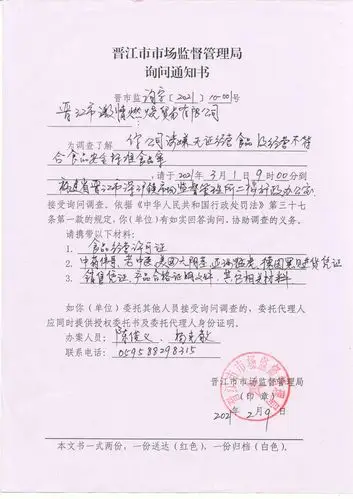 晋江市市场监督管理局
询问通知书
晋市监询字〔2021〕10-001号
晋江市激情燃烧贸易有限公司
为调查了解 你公司涉嫌无证经营食品及经营不符
合食品安全标准食品案
,请于2021年3月1日9时00分到
福建省晋江市深沪镇市场监督管理所二楼办公室
接受询问调查。依据《中华人民共和国行政处罚法》第三十七
条第一款的规定,你(单位)有如实回答询问、协助调查的义务。
请携带以下材料:
1. 食品经营许可证
2. 进货凭证
3. 销售凭证、产品合格证明文件、其它相关材料
如你(单位)委托其他人员接受询问调查的,委托代理人
应同时提供授权委托书及委托代理人身份证明。
办案人员:
联系电话:059588298315
晋江市市场监督管理局
(印章)
2021年2月9日
本文书一式两份,一份送达(红色),一份归档(白色)。